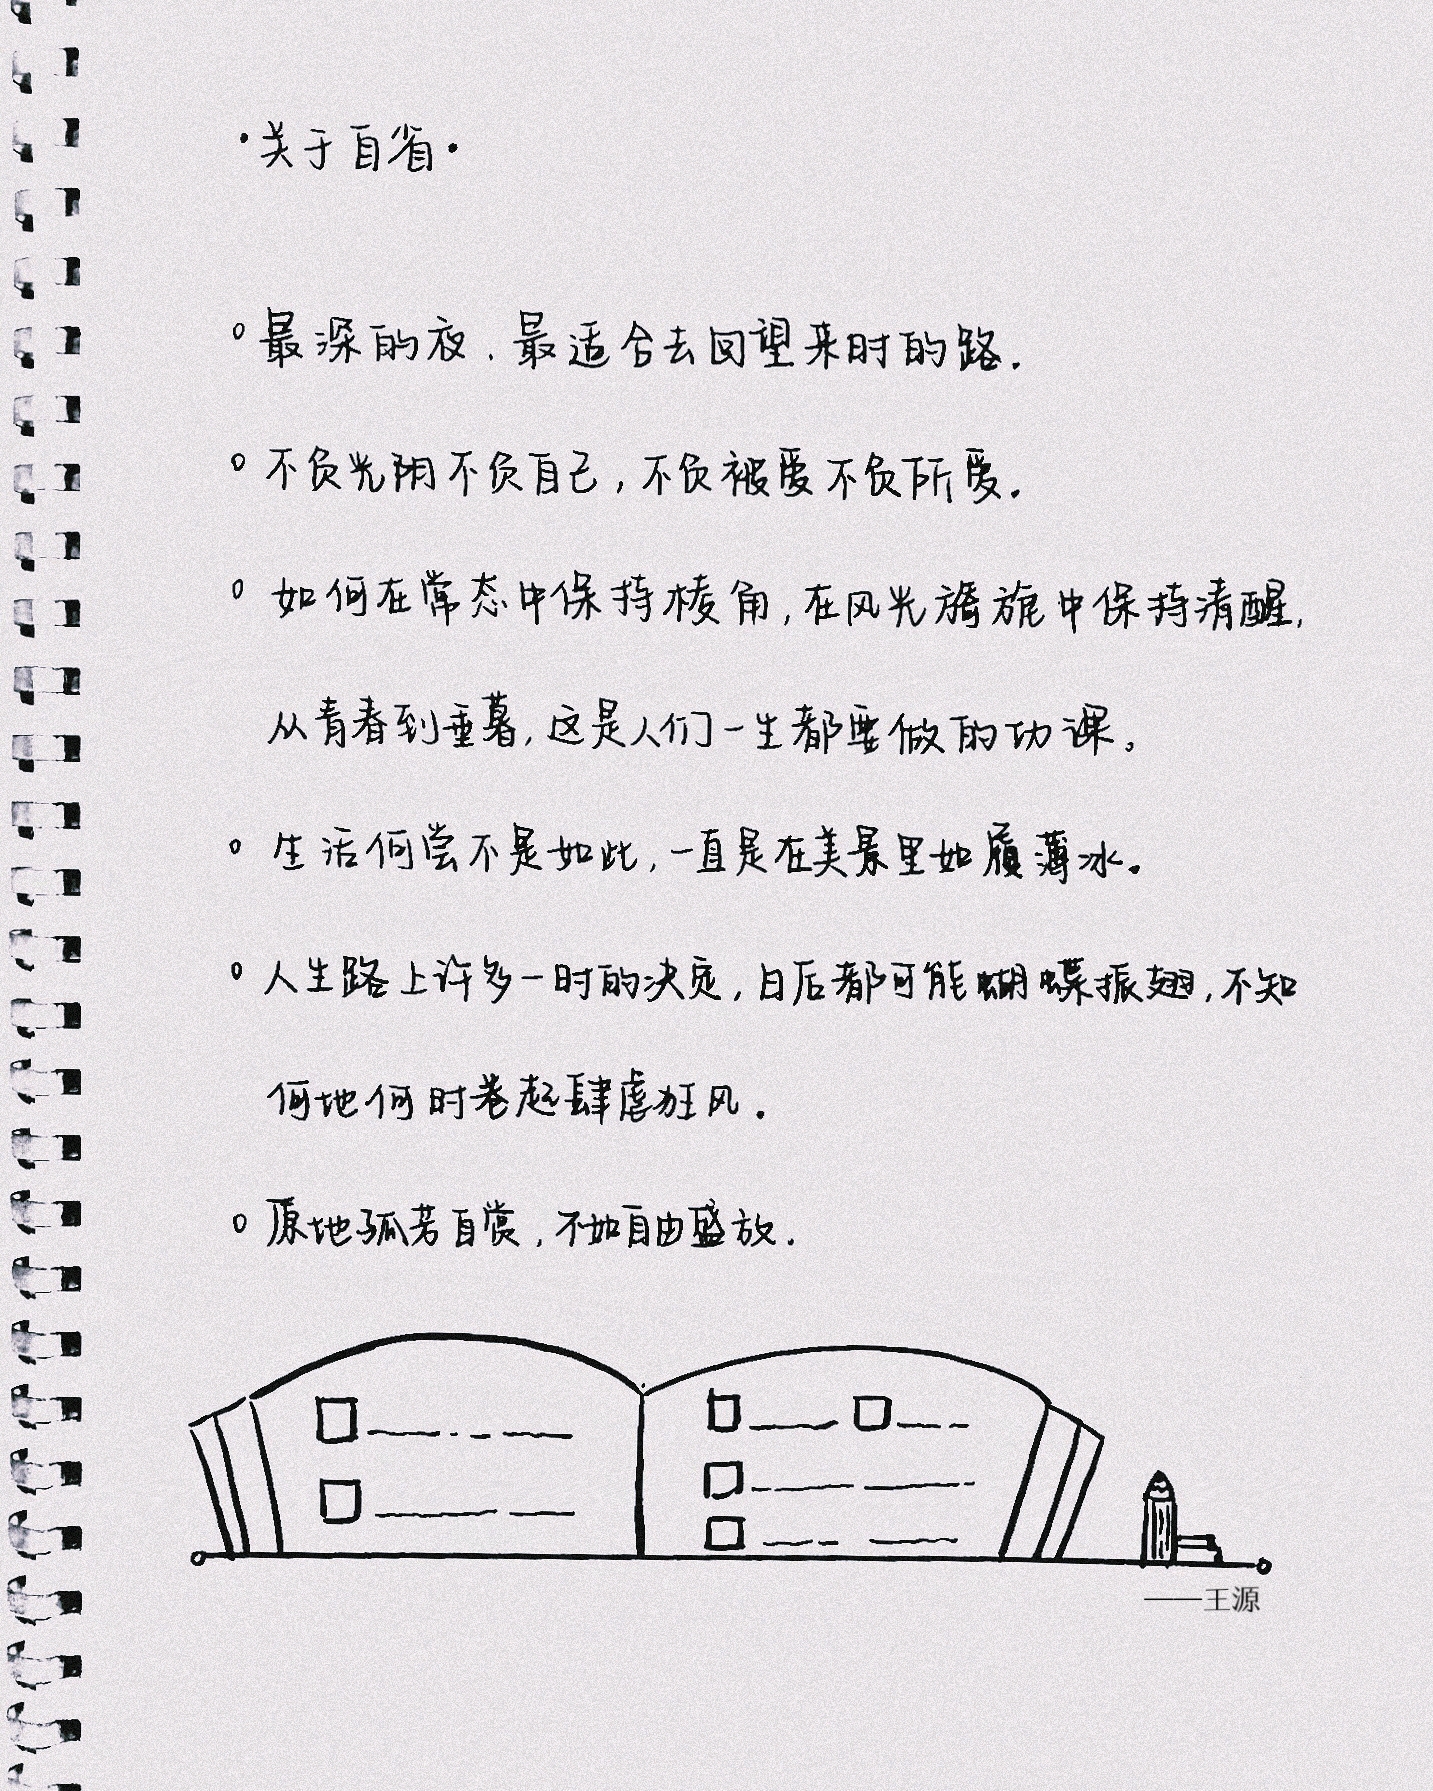 ·关于自省·
最深的夜、最适合去回望来时的路.
不负光阴不负自己,不负被爱不负所爱.
如何在常态中保持棱角,在风光旖旎中保持清醒,
从青春到垂暮,这是人们一生都要做的功课。
生活何尝不是如此,一直是在美景里如履薄冰。
人生路上许多一时的决定,日后都可能蝴蝶振翅,不知
何地何时卷起肆虐狂风.
原地孤芳自赏,不如自由盛放.
——王源